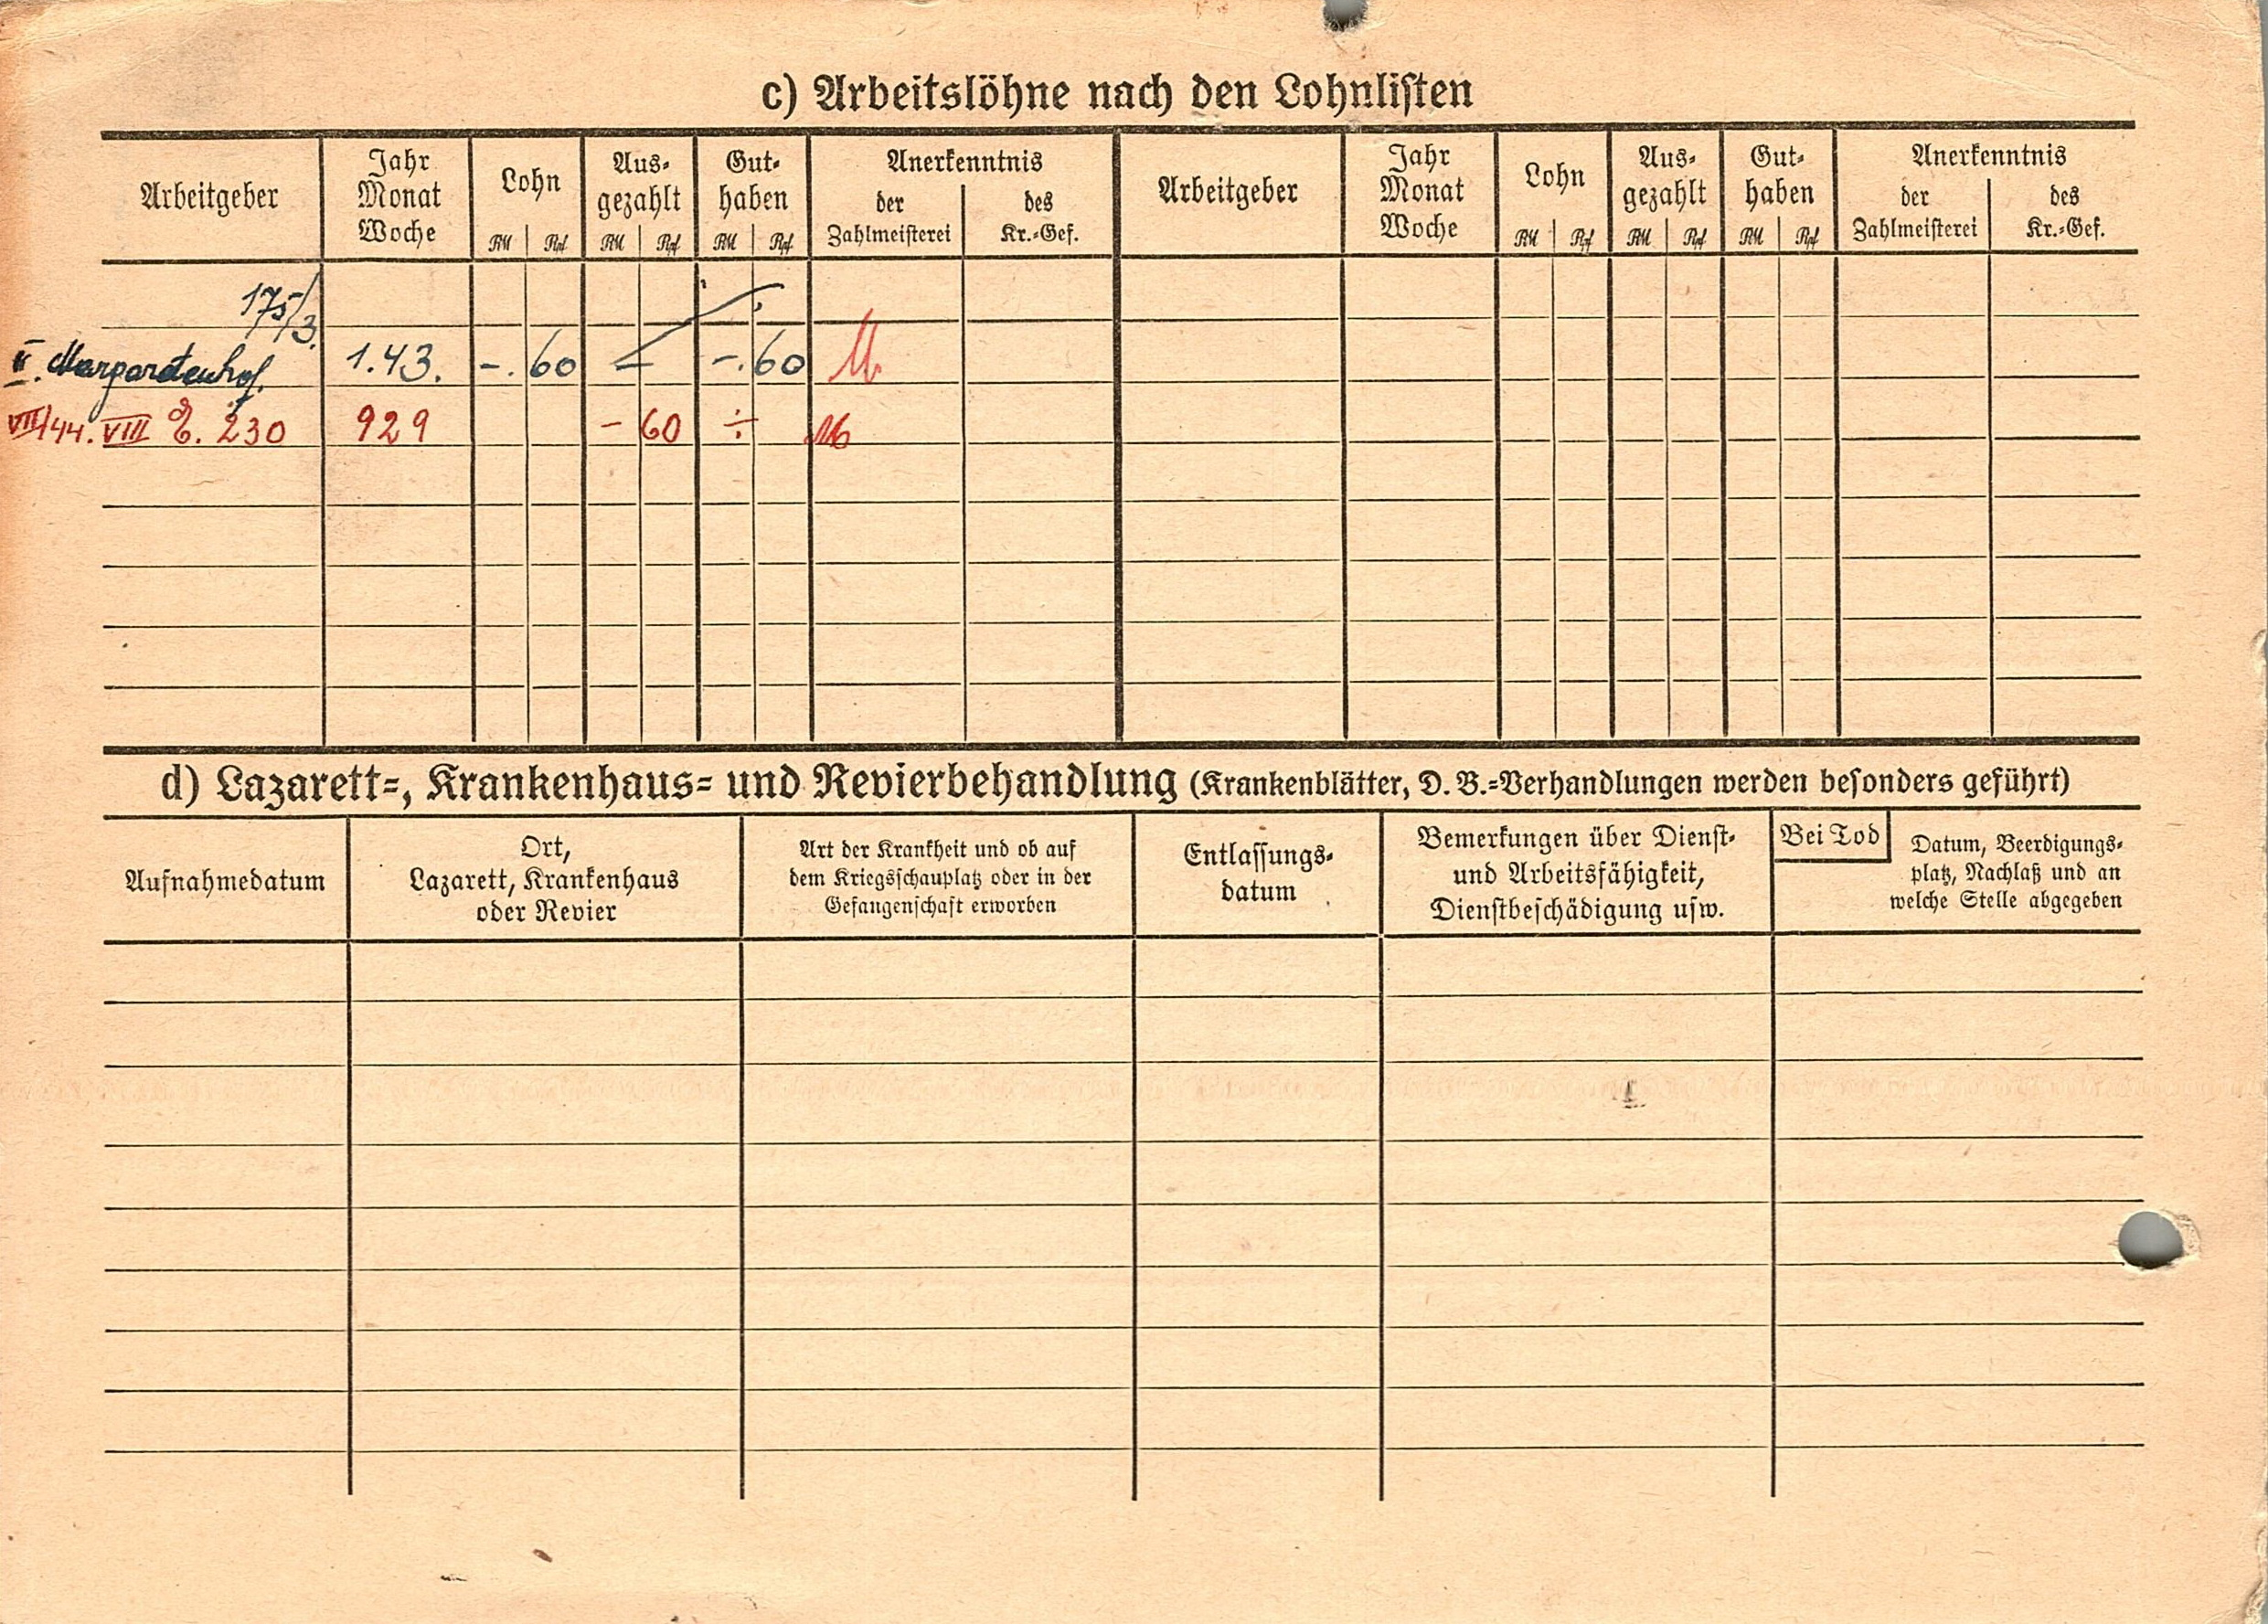 c) Arbeitslöhne nach den Lohnlisten
Arbeitgeber
Jahr
Monat
Woche
Lohn
RM Rpf
Aus-
gezahlt
RM Rpf
Gut-
haben
RM Rpf
Anerkenntnis
der
Zahlmeisterei
des
Kr.-Gef.
Arbeitgeber
Jahr
Monat
Woche
Lohn
RM Rpf
Aus-
gezahlt
RM Rpf
Gut-
haben
RM Rpf
Anerkenntnis
der
Zahlmeisterei
des
Kr.-Gef.
175/3.
II. Margaretenhof. 1.43. -. 60 - -. 60
VII/44. VIII E. 230 929 - 60 ÷
d) Lazarett-, Krankenhaus- und Revierbehandlung (Krankenblätter, D. B.-Verhandlungen werden besonders geführt)
Aufnahmedatum
Ort,
Lazarett, Krankenhaus
oder Revier
Art der Krankheit und ob auf
dem Kriegsschauplatz oder in der
Gefangenschaft erworben
Entlassungs-
datum
Bemerkungen über Dienst-
und Arbeitsfähigkeit,
Dienstbeschädigung usw.
Bei Tod
Datum, Beerdigungs-
platz, Nachlaß und an
welche Stelle abgegeben